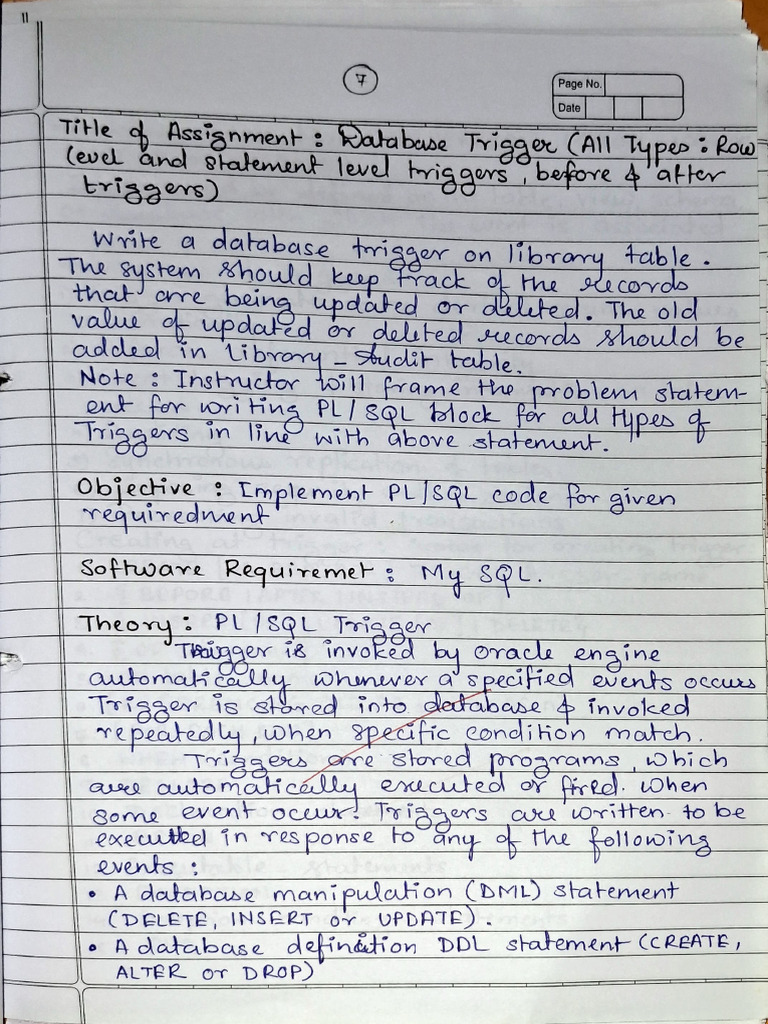 11
7
Page No.
Date
Title of Assignment : Database Trigger (All Types : Row
level and statement level triggers, before & after
triggers)
Write a database trigger on library table.
The system should keep track of the records
that are being updated or deleted. The old
value of updated or deleted records should be
added in Library - Audit table.
Note : Instructor will frame the problem statem-
ent for writing PL/SQL block for all types of
Triggers in line with above statement.
Objective : Implement PL/SQL code for given
requiredment
Software Requiremet : My SQL.
Theory : PL/SQL Trigger
Trigger is invoked by oracle engine
automatically whenever a specified events occurs
Trigger is stored into database & invoked
repeatedly, when specific condition match.
Triggers are stored programs, which
are automatically executed or fired. when
some event occur. Triggers are written to be
executed in response to any of the following
events :
• A database manipulation (DML) statement
(DELETE, INSERT or UPDATE).
• A database definition DDL statement (CREATE,
ALTER or DROP)